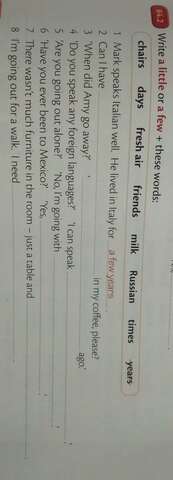 84.2 Write a little or a few + these words:
chairs days fresh air friends milk Russian times years
1 Mark speaks Italian well. He lived in Italy for a few years .
2 Can I have in my coffee, please?
3 'When did Amy go away?' ' ago.'
4 'Do you speak any foreign languages?' 'I can speak .'
5 'Are you going out alone?' 'No, I'm going with .'
6 'Have you ever been to Mexico?' 'Yes, .'
7 There wasn't much furniture in the room – just a table and .
8 I'm going out for a walk. I need .